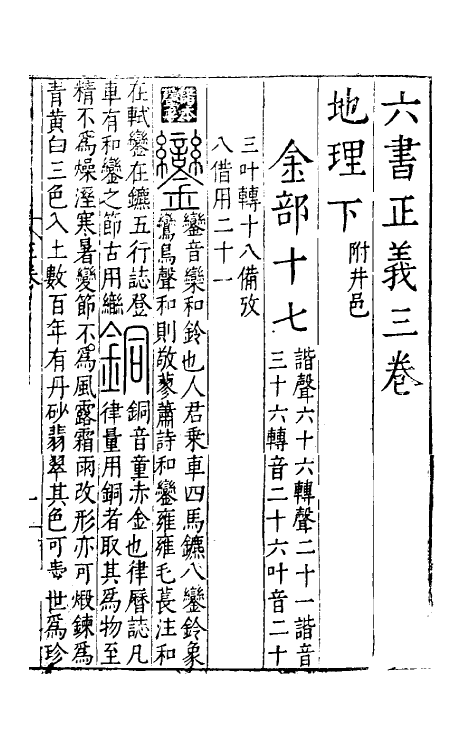 六書正義三卷
地理下 附井邑
金部十七 諧聲六十六轉聲二十一諧音
三十六轉音二十六叶音二十
三叶轉十八備攷
八借用二十一
鑾 鑾音欒和鈴也人君乘車四馬鑣八鑾鈴象
鸞鳥聲和則敬蓼蕭詩和鑾雍雍毛萇注和
在軾鑾在鑣五行誌登
車有和鑾之節古用䜌
銅 銅音童赤金也律曆誌凡
律量用銅者取其爲物至
精不爲燥溼寒暑變節不爲風露霜雨改形亦可煅鍊爲
青黄白三色入土數百年有丹砂翡翠其色可㤅世爲珍